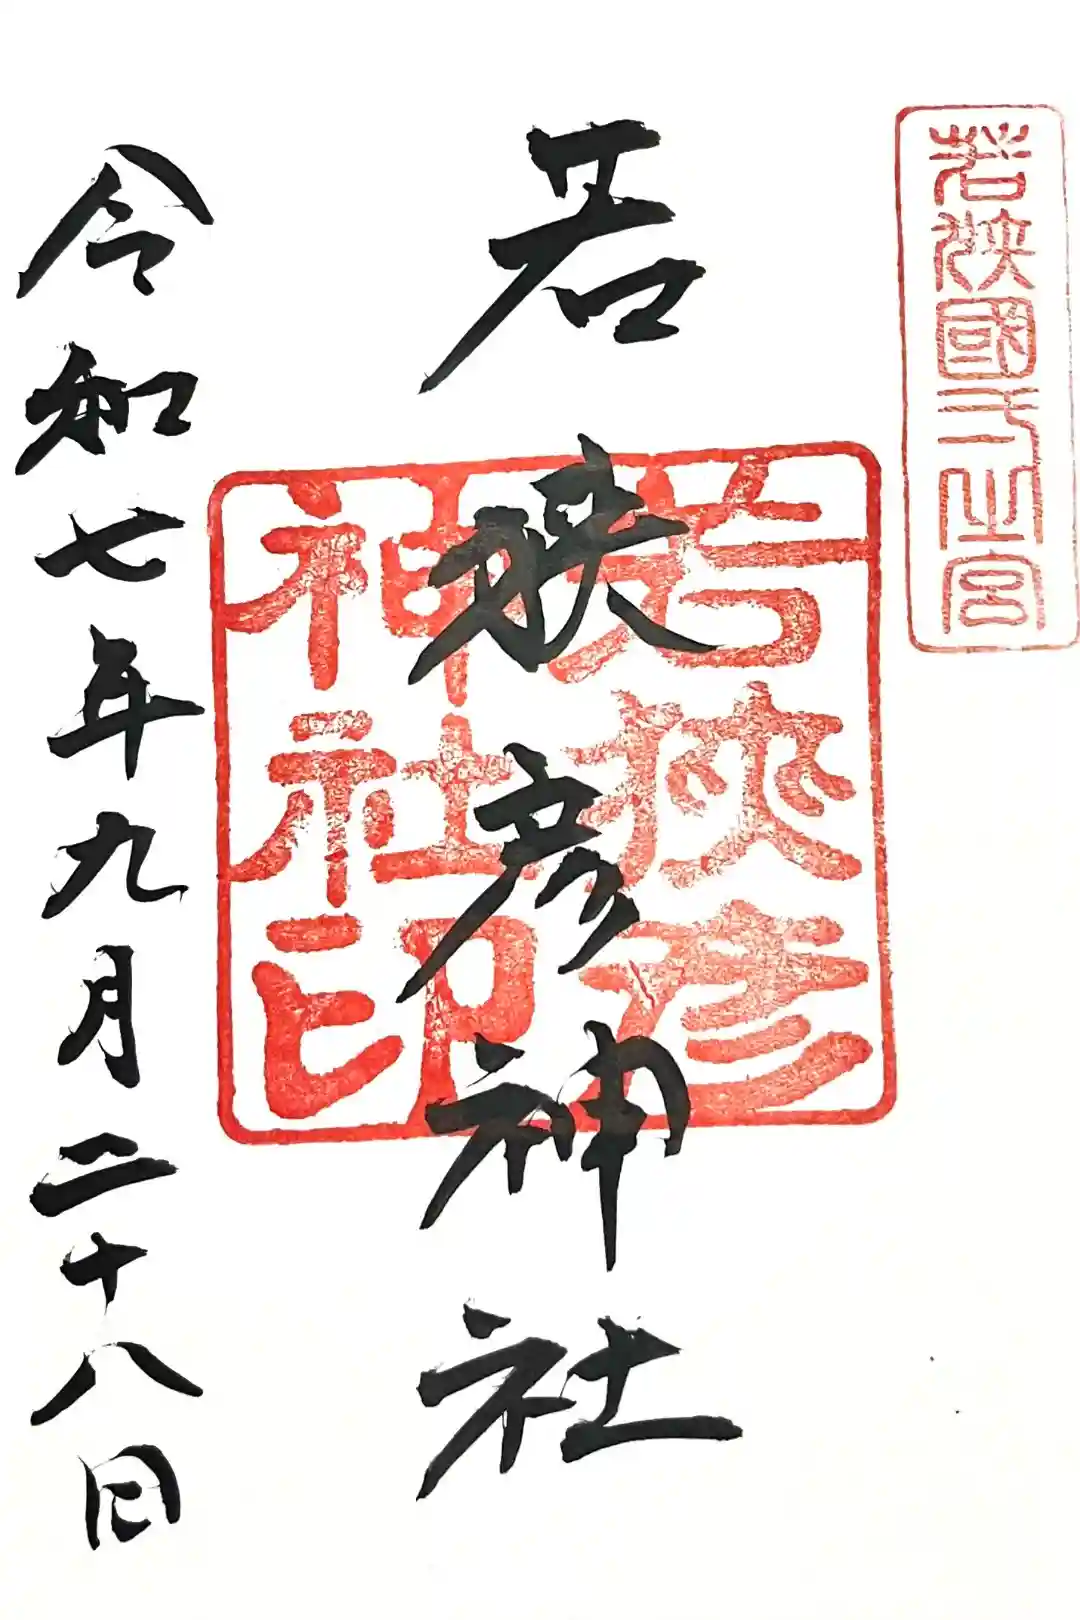 若狹國一之宮
若狭彦神社
若狹彦
神社印
令和七年九月二十八日